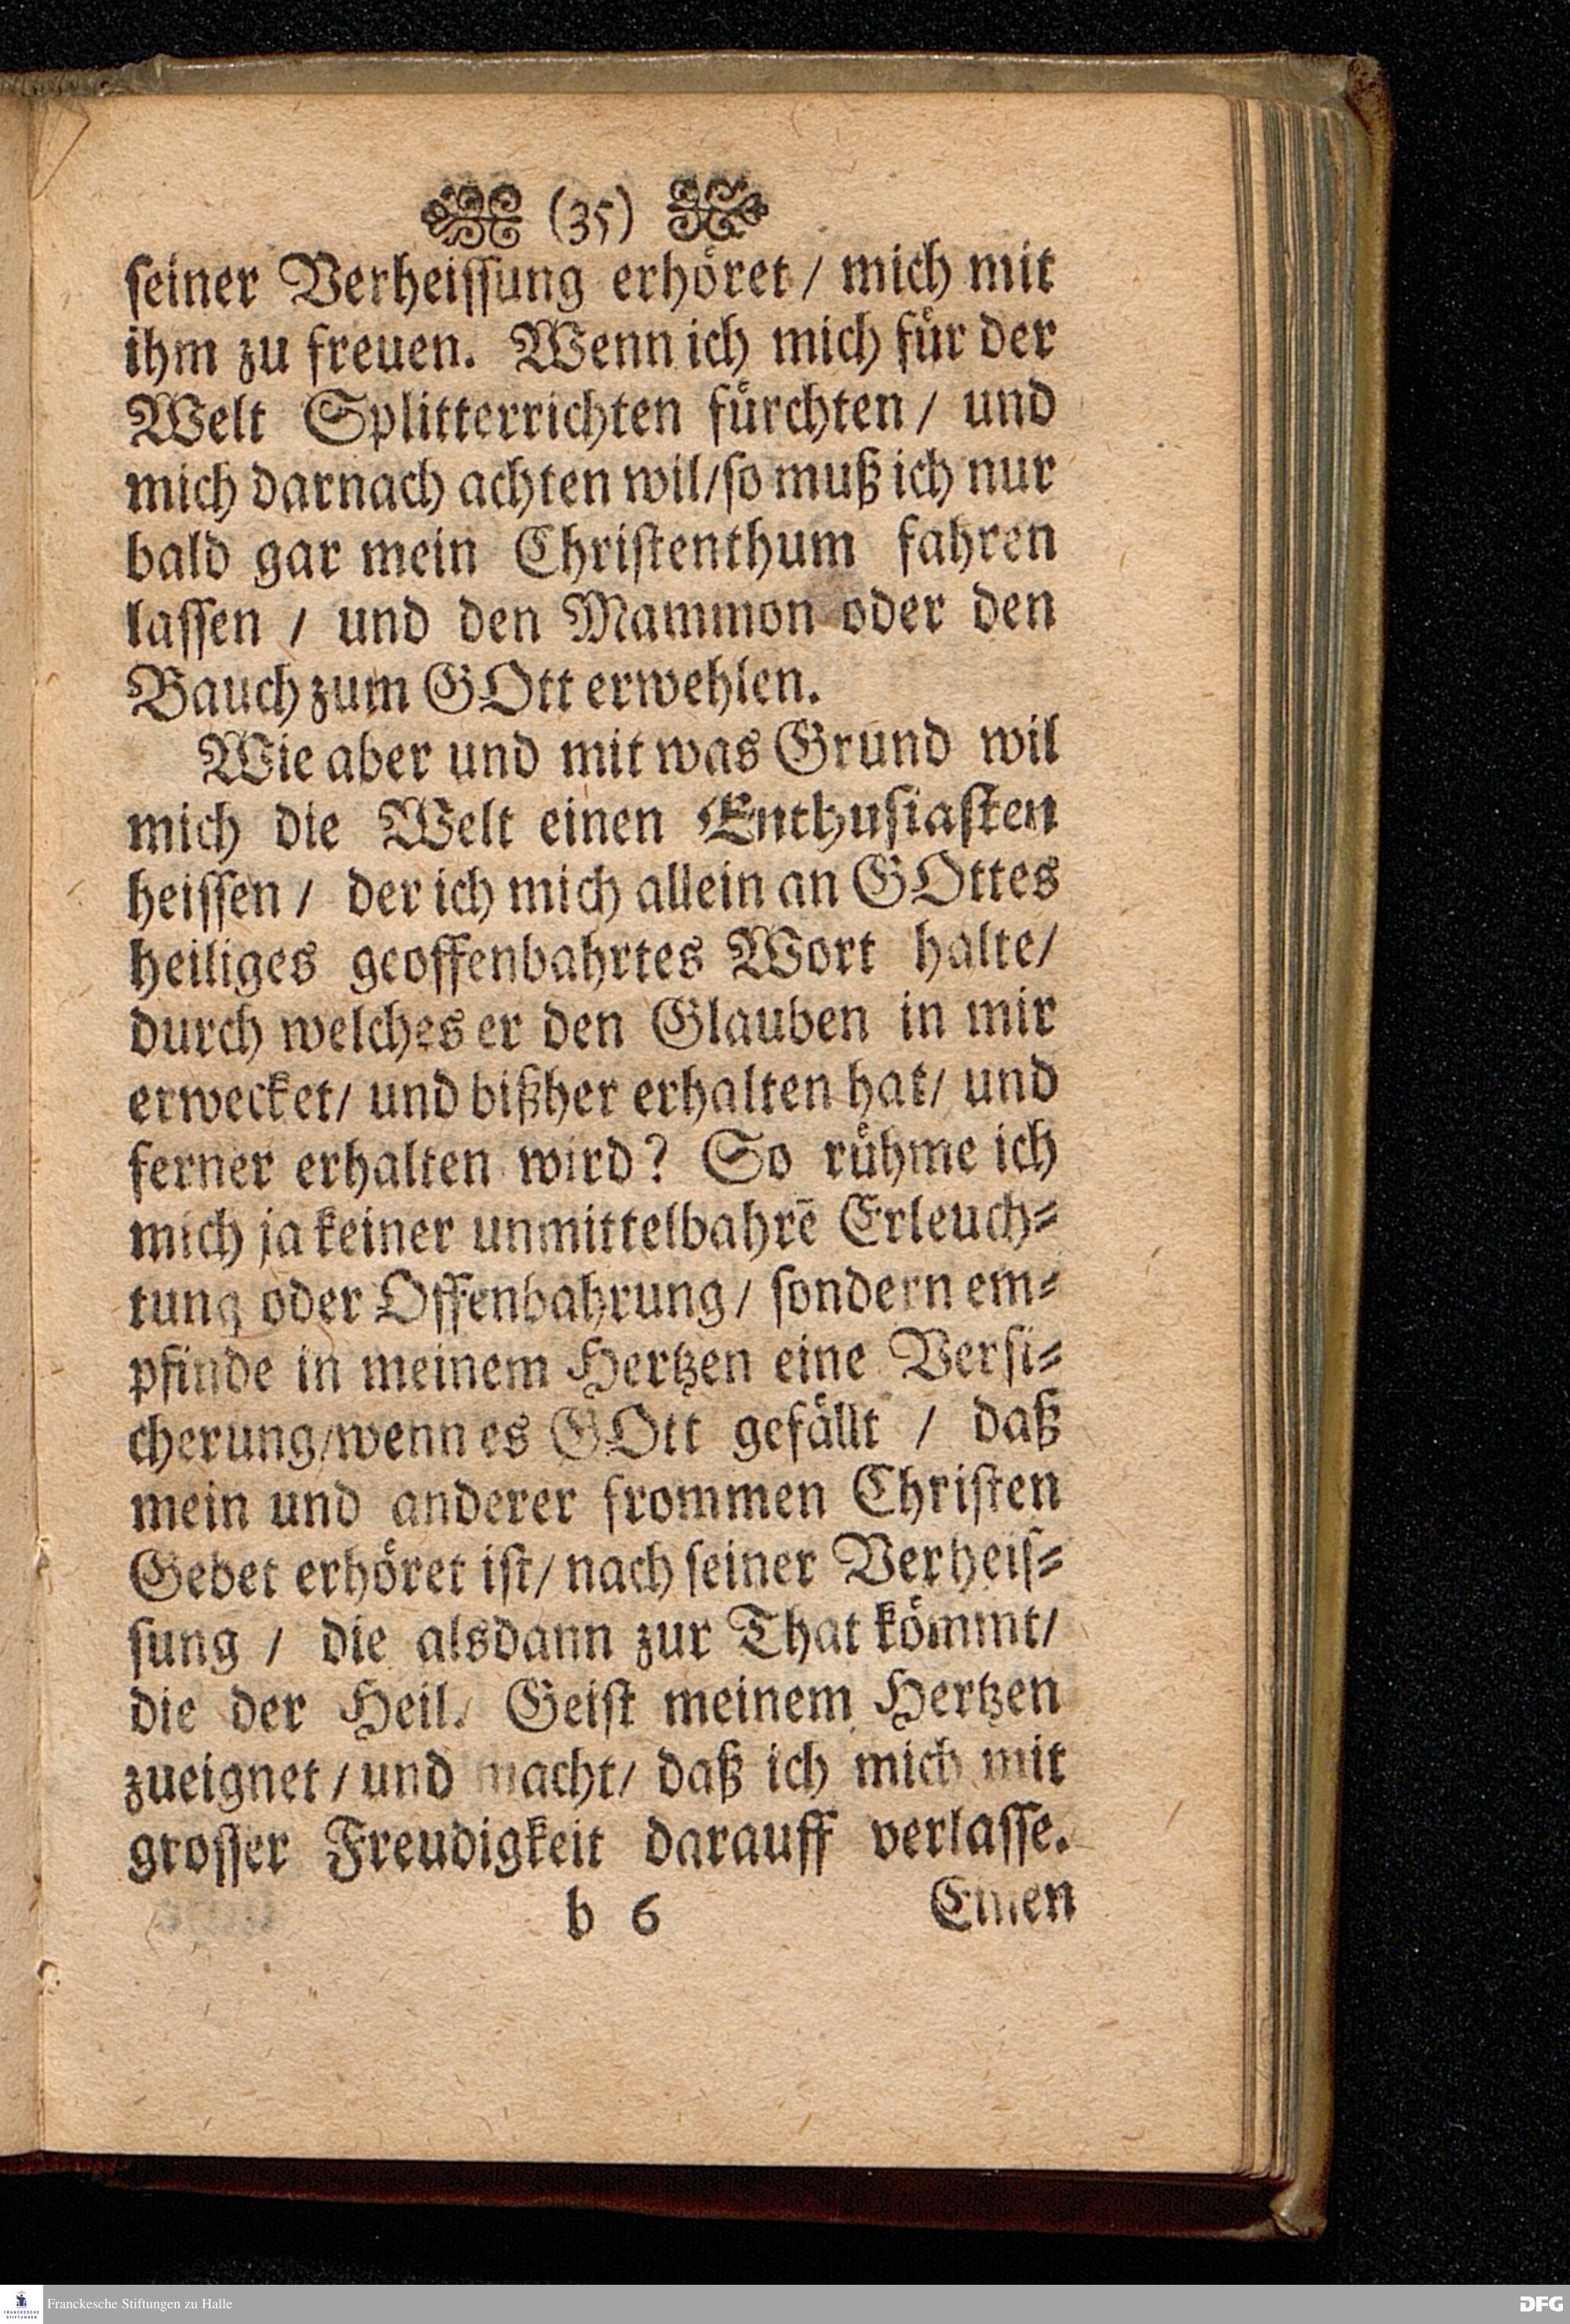 (35)
seiner Verheissung erhöret / mich mit
ihm zu freuen. Wenn ich mich für der
Welt Splitterrichten fürchten / und
mich darnach achten wil/so muß ich nur
bald gar mein Christenthum fahren
lassen / und den Mammon oder den
Bauch zum GOtt erwehlen.
Wie aber und mit was Grund wil
mich die Welt einen Enthusiasten
heissen / der ich mich allein an GOttes
heiliges geoffenbahrtes Wort halte/
durch welches er den Glauben in mir
erwecket/ und bißher erhalten hat/ und
ferner erhalten wird? So rühme ich
mich ja keiner unmittelbahrē Erleuch-
tung oder Offenbahrung / sondern em-
pfinde in meinem Hertzen eine Versi-
cherung/wenn es GOtt gefällt / daß
mein und anderer frommen Christen
Gebet erhöret ist/ nach seiner Verheis-
sung / die alsdann zur That kömmt/
die der Heil. Geist meinem Hertzen
zueignet / und macht/ daß ich mich mit
grosser Freudigkeit darauff verlasse.
b 6 Einen
FRANCKESCHE
STIFTUNGEN
Franckesche Stiftungen zu Halle
DFG